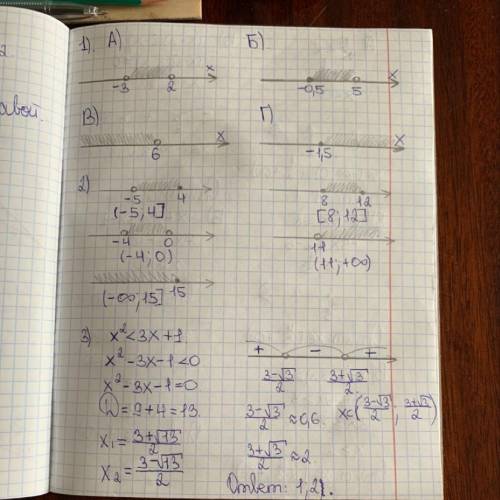 авой.
1). А)
Б)
-3 2 x
-0,5 5 x
В)
Г)
6 x
-1,5 x
2)
-5 4
8 12
(-5; 4]
[8; 12]
-4 0
11
(-4; 0)
(11; +∞)
15
(-∞; 15]
3) x² < 3x + 1
x² - 3x - 1 < 0
x² - 3x - 1 = 0
D = 9 + 4 = 13
x₁ = (3+√13)/2
x₂ = (3-√13)/2
+ - +
(3-√3)/2 (3+√3)/2
(3-√3)/2 ≈ 0,6. x∈((3-√3)/2; (3+√3)/2)
(3+√3)/2 ≈ 2
Ответ: 1,2.